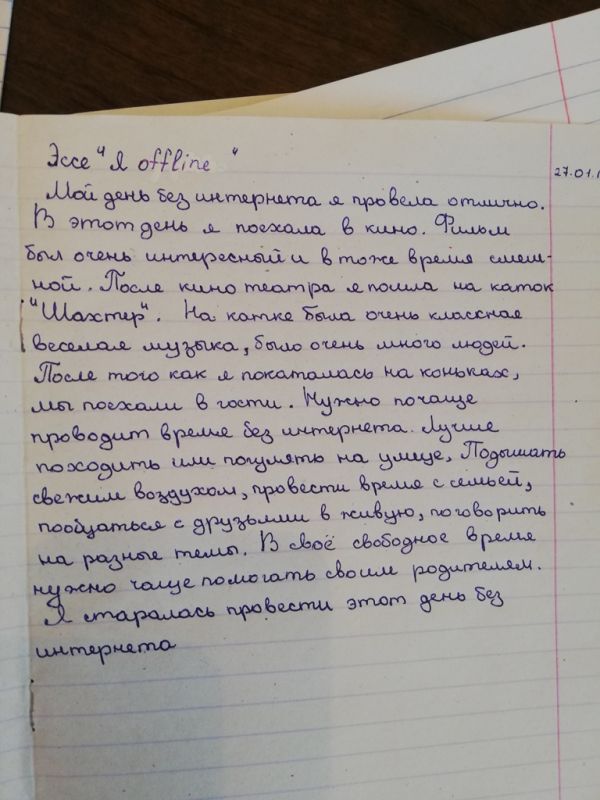 Эссе "Я offline"
27.01.1
Мой день без интернета я провела отлично.
В этот день я поехала в кино. Фильм
был очень интересный и в тоже время смеш-
ной. После кино театра я пошла на каток
"Шахтер". На катке была очень классная
веселая музыка, было очень много людей.
После того как я покаталась на коньках,
мы поехали в гости. Нужно почаще
проводит время без интернета. Лучше
походить или погулять на улице, Подышать
свежим воздухом, провести время с семьей,
пообщаться с друзьями в живую, поговорить
на разные темы. В своё свободное время
нужно чаще помогать своим родителям.
Я старалась провести этот день без
интернета